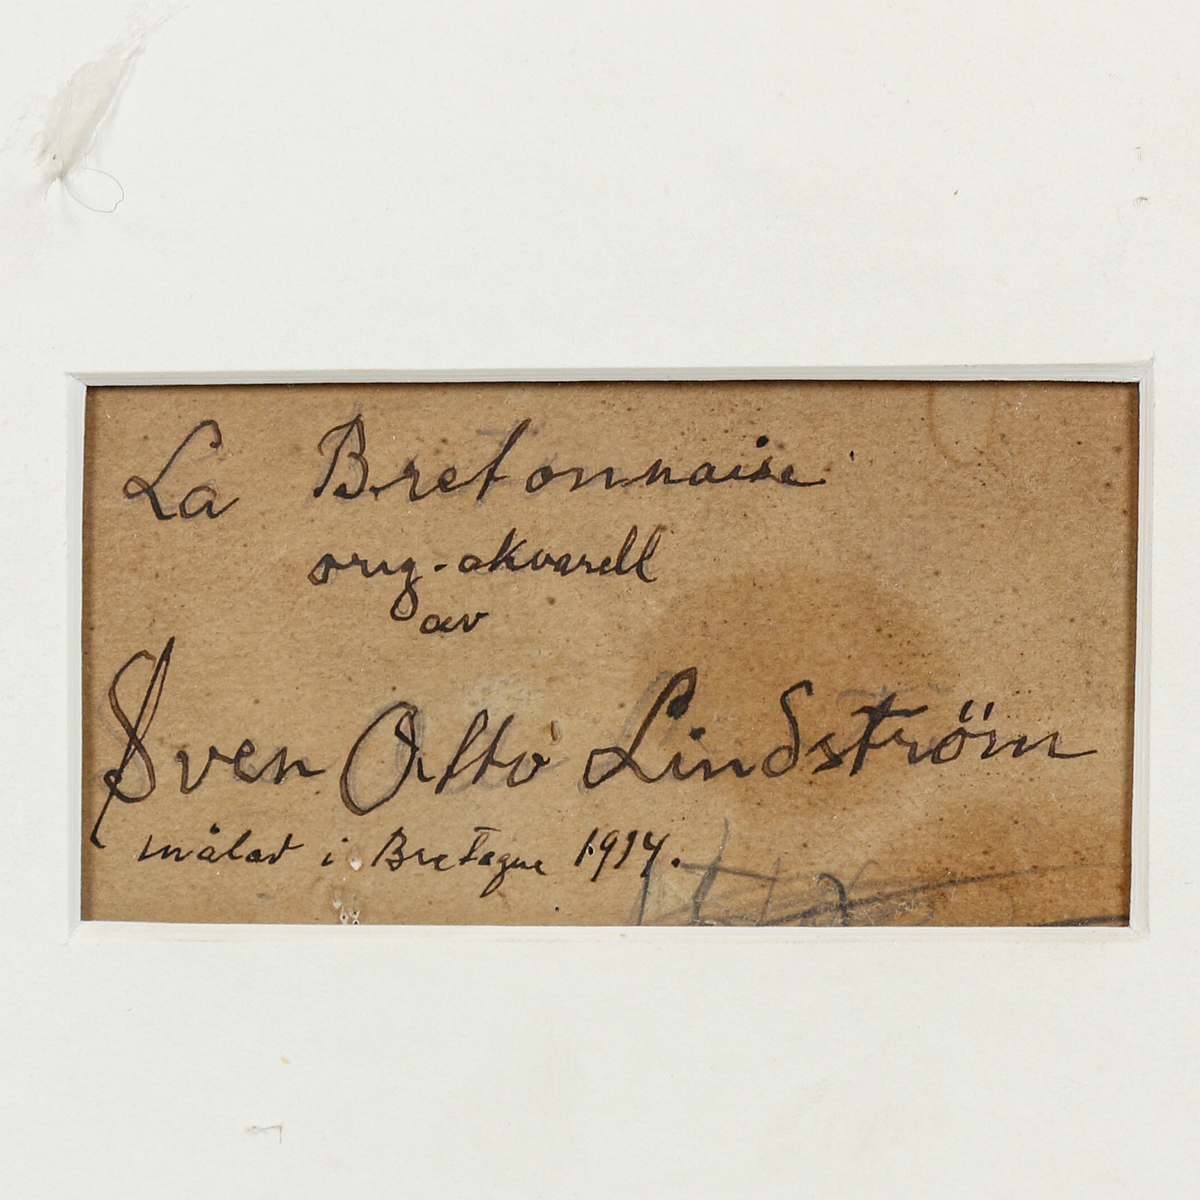 La Bretonnaise
orig-akvarell
av
Sven Otto Lindström
målad i Bretagne 1914.